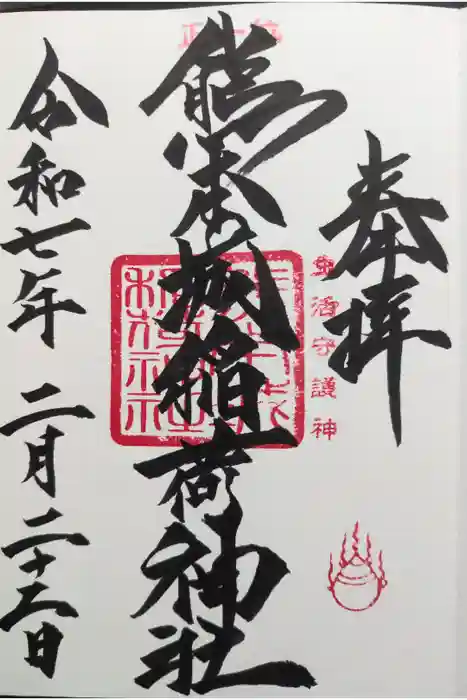 奉拝
生活守護神
正一位
熊本城稲荷神社
令和七年 二月二十二日